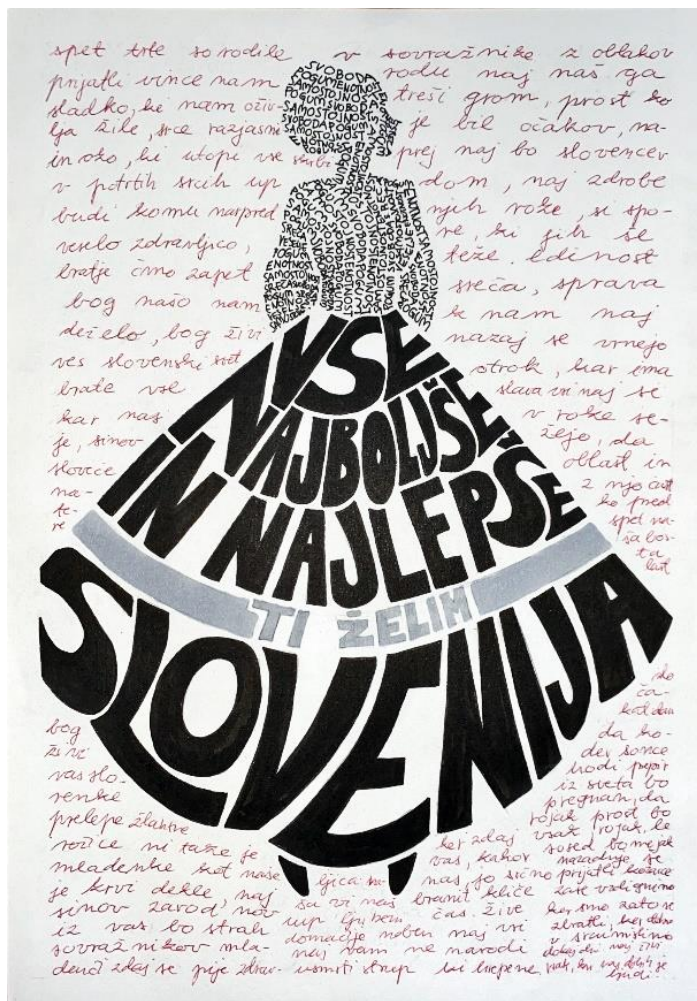 spet trte so rodile
prijatli vince nam
sladko, ki nam oživ-
lja žile, srce razjasni
in oko, ki utopi vse skrbi
v potrtih srcih up
budi komu narpred
veselo zdravljico,
bratje čmo zapet
bog našo nam
deželo, bog živi
ves slovenski svet
brate vse
kar nas
je, sinov
sloveče
ma-
te-
re
v sovražnike z oblakov
rodu naj naš ga
treši grom, prost ko
je bil očakov, na-
prej naj bo slovencev
dom, naj zdrobe
njih roke, si spo-
ne, ki jih še
teže, edinost
sreča, sprava
k nam naj
nazaj se vrnejo
otrok, kar ima
slava vsi naj se
v roke se-
žejo, da
oblast in
z njo čast
ko pred
spet na-
ša bos-
ta
last
SVOBODA
POGUM
SAMOSTOJNOST
ENOTNOST
SREČA
VESELJE
VSE
NAJBOLJŠE
IN NAJLEPŠE
TI ŽELIM
SLOVENIJA
bog
živi
vas slo-
venke
prelepe žlahtne
rožice ni take je
mladenke kot naše
je krvi dekle, naj
sinov zarod nov
iz vas bo strah
sovražnikov mla-
denči zdaj se pije zdrav-
ljica
sa vi naš
up ljubezni
domačije noben naj vri
naj vam ne narodi
usmrti strup
ker zdaj
vas, kakor
nas, jo srčno
branit kliče
čas. žive
da ko-
der sonce
hodi prepir
iz sveta bo
pregnan, da
rojak prost bo
vsak, ne vrag, le
sosed bo mejak